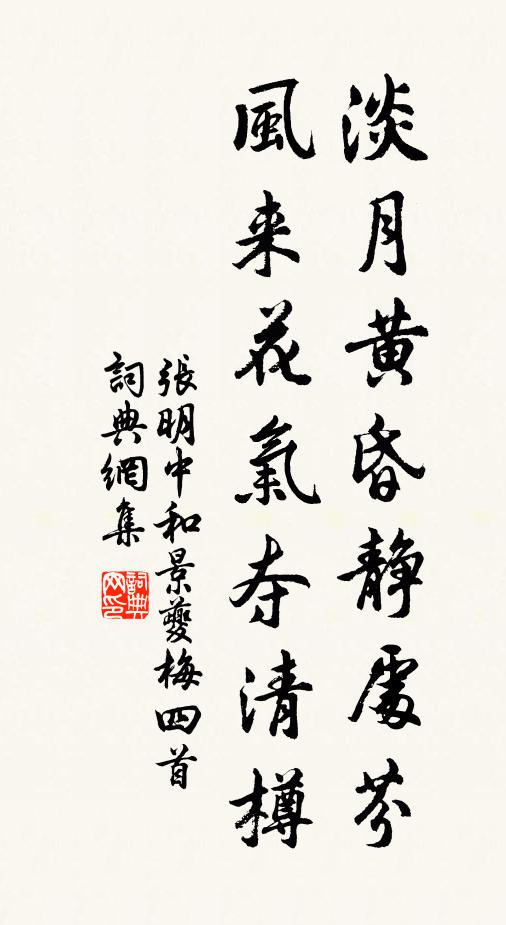 淡月黄昏静處芬
風来花氣夺清樽
張明中和景夔梅四首
詞典網集
詞典网印